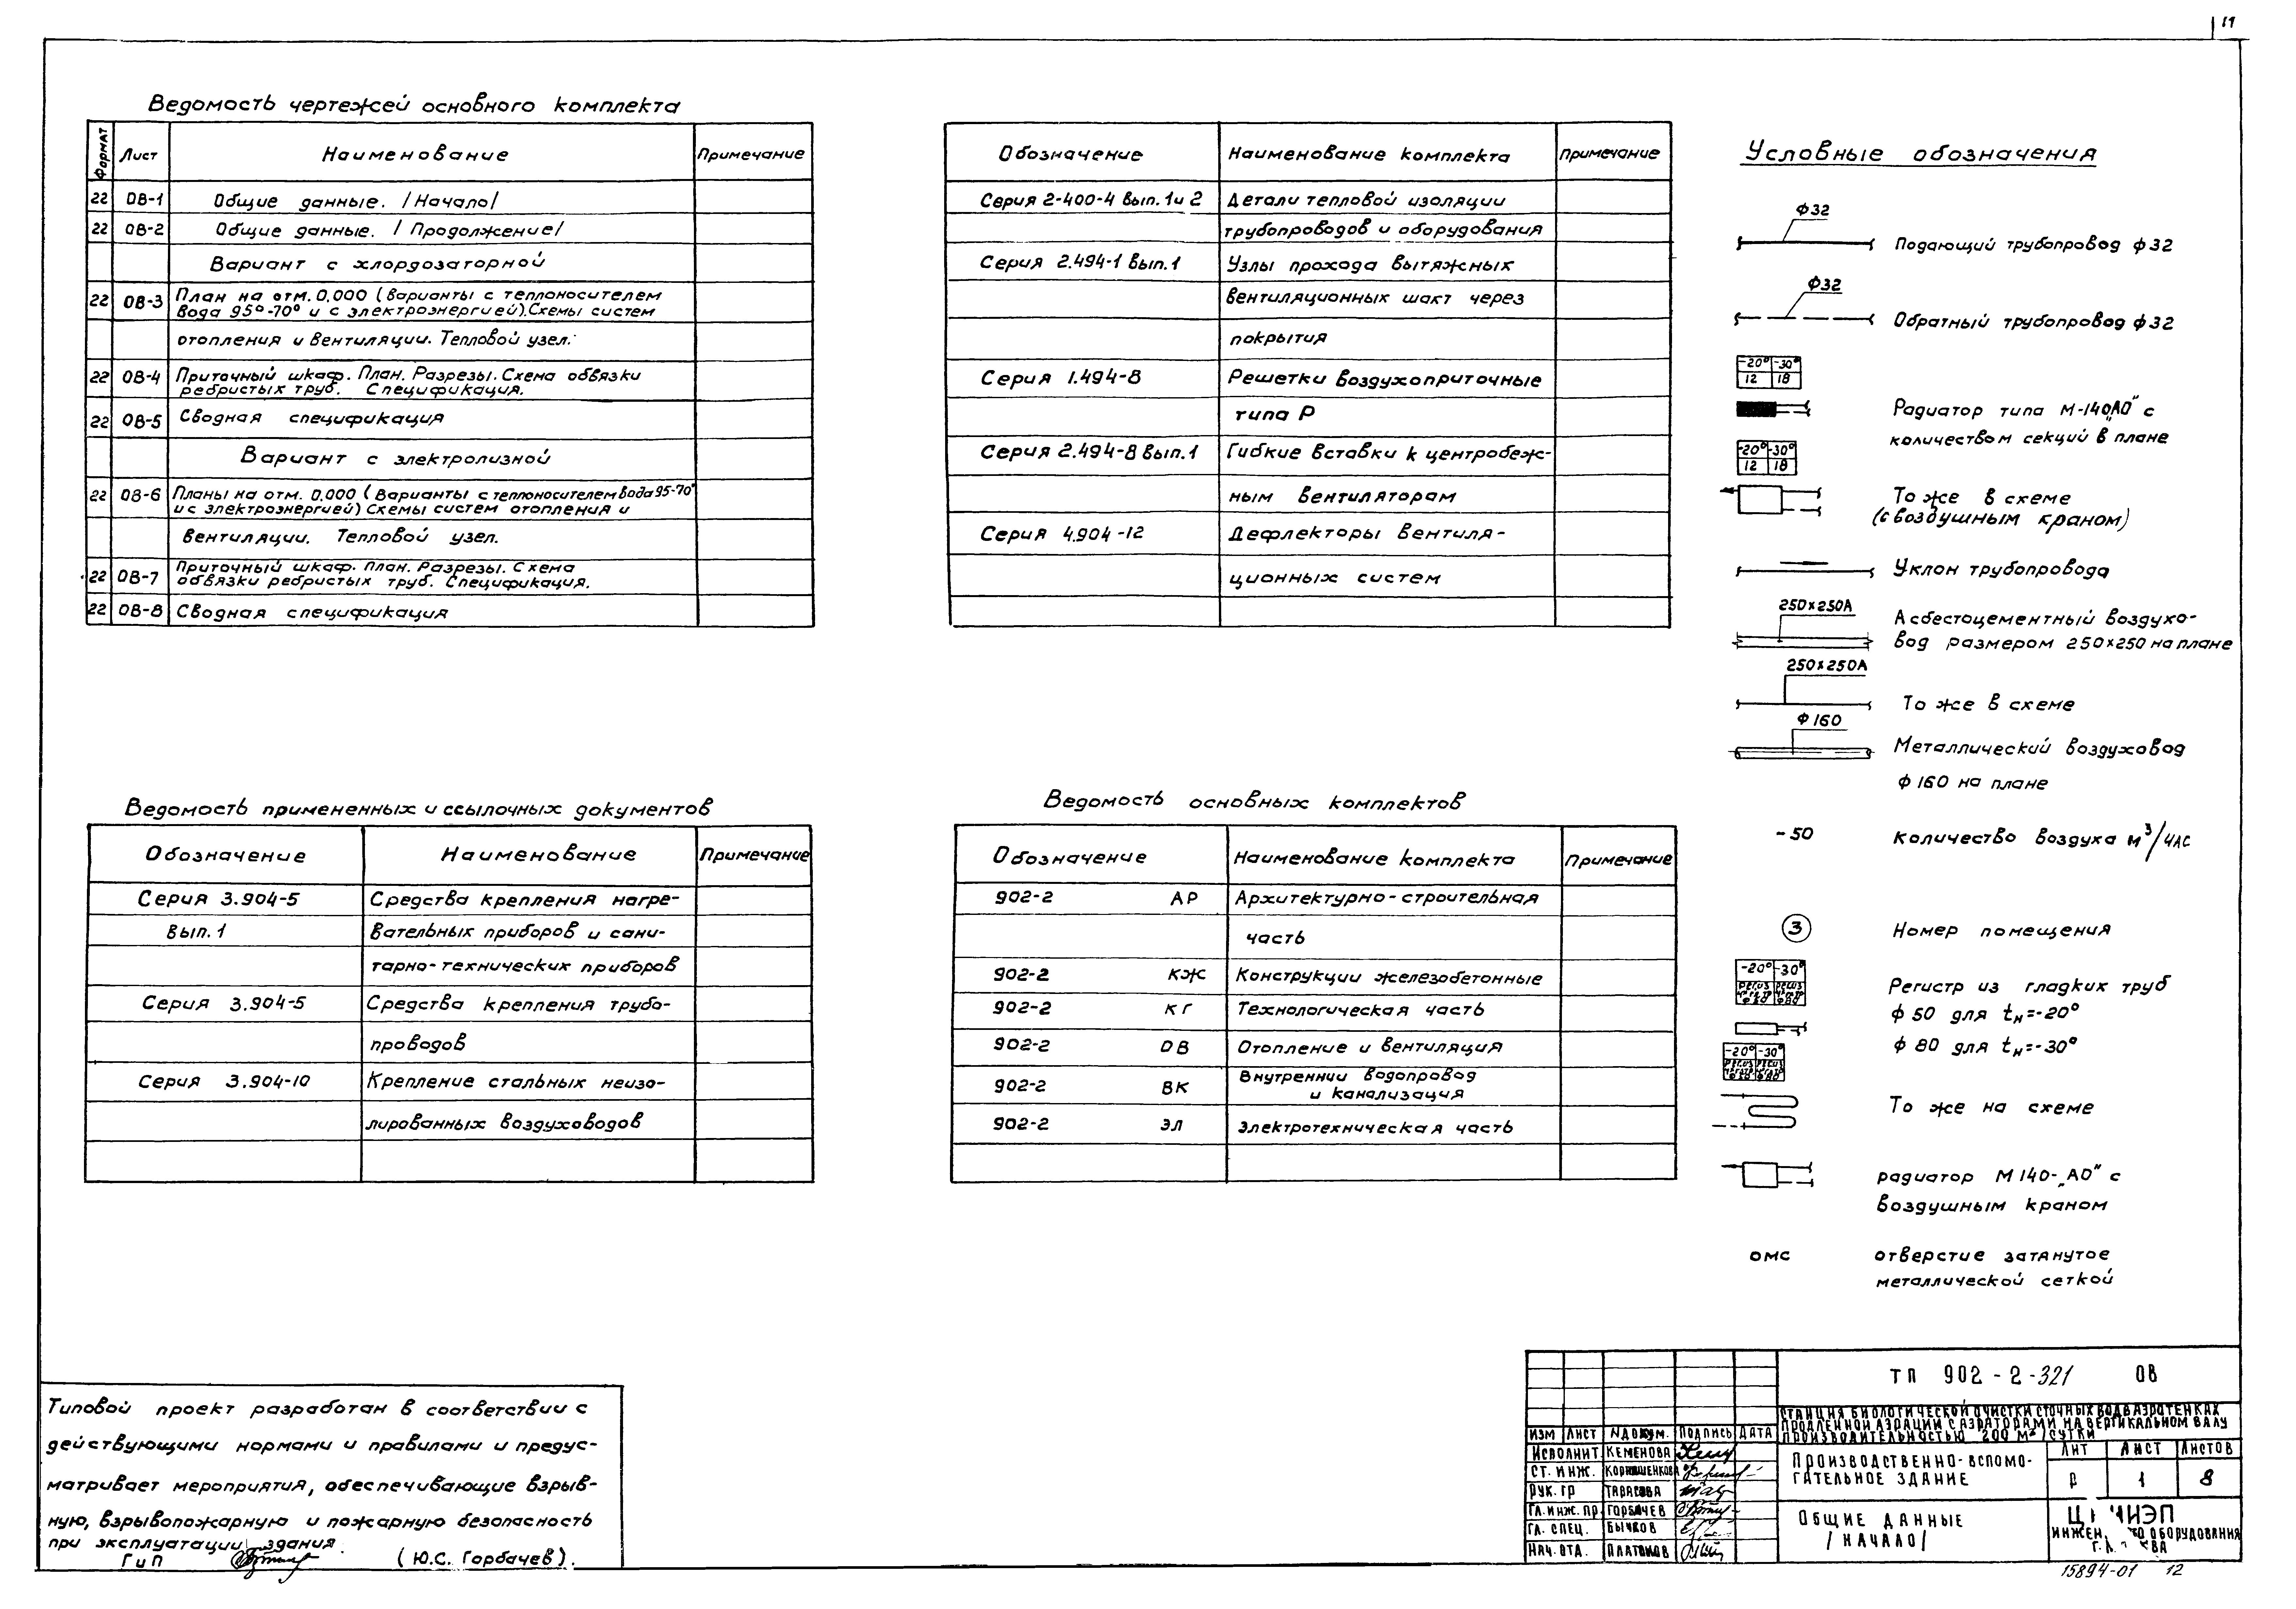 11
Ведомость чертежей основного комплекта
Формат Лист Наименование Примечание
22 ОВ-1 Общие данные. /Начало/
22 ОВ-2 Общие данные. /Продолжение/
Вариант с хлордозаторной
22 ОВ-3 План на отм. 0,000 (варианты с теплоносителем
вода 95°-70° и с электроэнергией). Схемы систем
отопления и вентиляции. Тепловой узел.
22 ОВ-4 Приточный шкаф. План. Разрезы. Схема обвязки
ребристых труб. Спецификация.
22 ОВ-5 Сводная спецификация
Вариант с электролизной
22 ОВ-6 Планы на отм. 0,000 (Варианты с теплоносителем вода 95-70°
и с электроэнергией) Схемы систем отопления и
вентиляции. Тепловой узел.
22 ОВ-7 Приточный шкаф. План. Разрезы. Схема
обвязки ребристых труб. Спецификация.
22 ОВ-8 Сводная спецификация
Обозначение Наименование комплекта Примечание
Серия 2-400-4 Вып. 1 и 2 Детали тепловой изоляции
трубопроводов и оборудования
Серия 2.494-1 Вып. 1 Узлы прохода вытяжных
вентиляционных шахт через
покрытия
Серия 1.494-8 Решетки воздухоприточные
типа Р
Серия 2.494-8 Вып. 1 Гибкие вставки к центробеж-
ным вентиляторам
Серия 4.904-12 Дефлекторы вентиля-
ционных систем
Условные обозначения
ф32
Подающий трубопровод ф32
ф32
Обратный трубопровод ф32
-20° -30°
12 18
Радиатор типа М-140„АО" с
количеством секций в плане
-20° -30°
12 18
То же в схеме
(с воздушным краном)
Уклон трубопровода
250×250А
Асбестоцементный воздухо-
вод размером 250×250 на плане
250×250А
То же в схеме
ф160
Металлический воздуховод
ф160 на плане
-50 Количество воздуха м³/час
3 Номер помещения
-20° -30°
Регистр из гладких труб
ф50 для tн=-20°
ф80 для tн=-30°
-20° -30°
То же на схеме
радиатор М140-„АО" с
воздушным краном
ОМС отверстие затянутое
металлической сеткой
Ведомость примененных и ссылочных документов
Обозначение Наименование Примечание
Серия 3.904-5 Средства крепления нагре-
Вып. 1 вательных приборов и сани-
тарно-технических приборов
Серия 3.904-5 Средства крепления трубо-
проводов
Серия 3.904-10 Крепление стальных неизо-
лированных воздуховодов
Ведомость основных комплектов
Обозначение Наименование комплекта Примечание
902-2 АР Архитектурно-строительная
часть
902-2 КЖ Конструкции железобетонные
902-2 КГ Технологическая часть
902-2 ОВ Отопление и вентиляция
902-2 ВК Внутреннии водопровод
и канализация
902-2 ЭЛ Электротехническая часть
Типовой проект разработан в соответствии с
действующими нормами и правилами и предус-
матривает мероприятия, обеспечивающие взрыв-
ную, взрывопожарную и пожарную безопасность
при эксплуатации здания.
ГиП (Ю.С. Горбачев).
ТП 902-2-321 ОВ
Станция биологической очистки сточных вод в аэротенках
продленной аэрации с аэраторами на вертикальном валу
производительностью 200 м³/сутки
Изм Лист № докум. Подпись Дата
Исполнит Кеменова
Ст. инж.
Рук. гр Тарасова
Гл. инж. пр Горбачев
Гл. спец. Бычков
Нач. отд. Платонов
Производственно-вспомо-
гательное здание
Лит Лист Листов
Р 1 8
Общие данные
/начало/
оборудования
15894-01 12